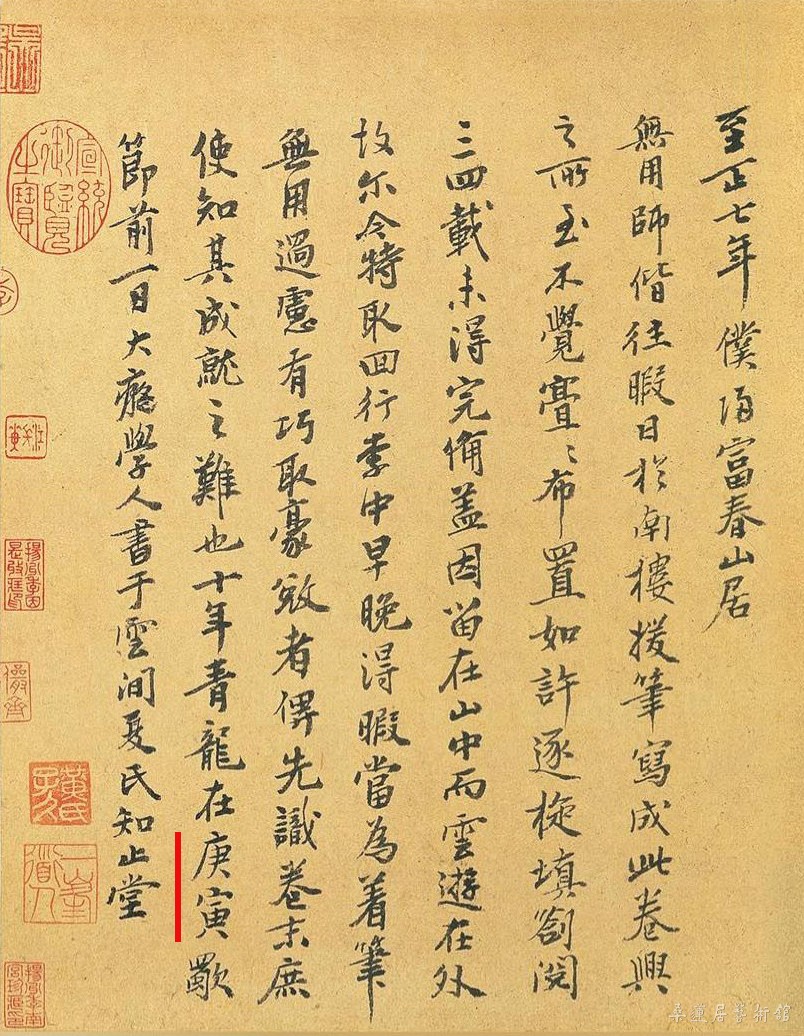 至正七年僕歸富春山居
無用師偕往暇日於南樓援筆寫成此卷興
之所至不覺亹〻布置如許逐旋填劄閱
三四載未得完備盖因留在山中而雲遊在外
故尔今特取回行李中早晚得暇當為着筆
無用過慮有巧取豪敓者俾先識卷末庶
使知其成就之難也十年青龍在庚寅歜
節前一日大癡學人書于雲間夏氏知止堂
宣統御覽之寶
黃氏子久
一峯道人
居藝術館